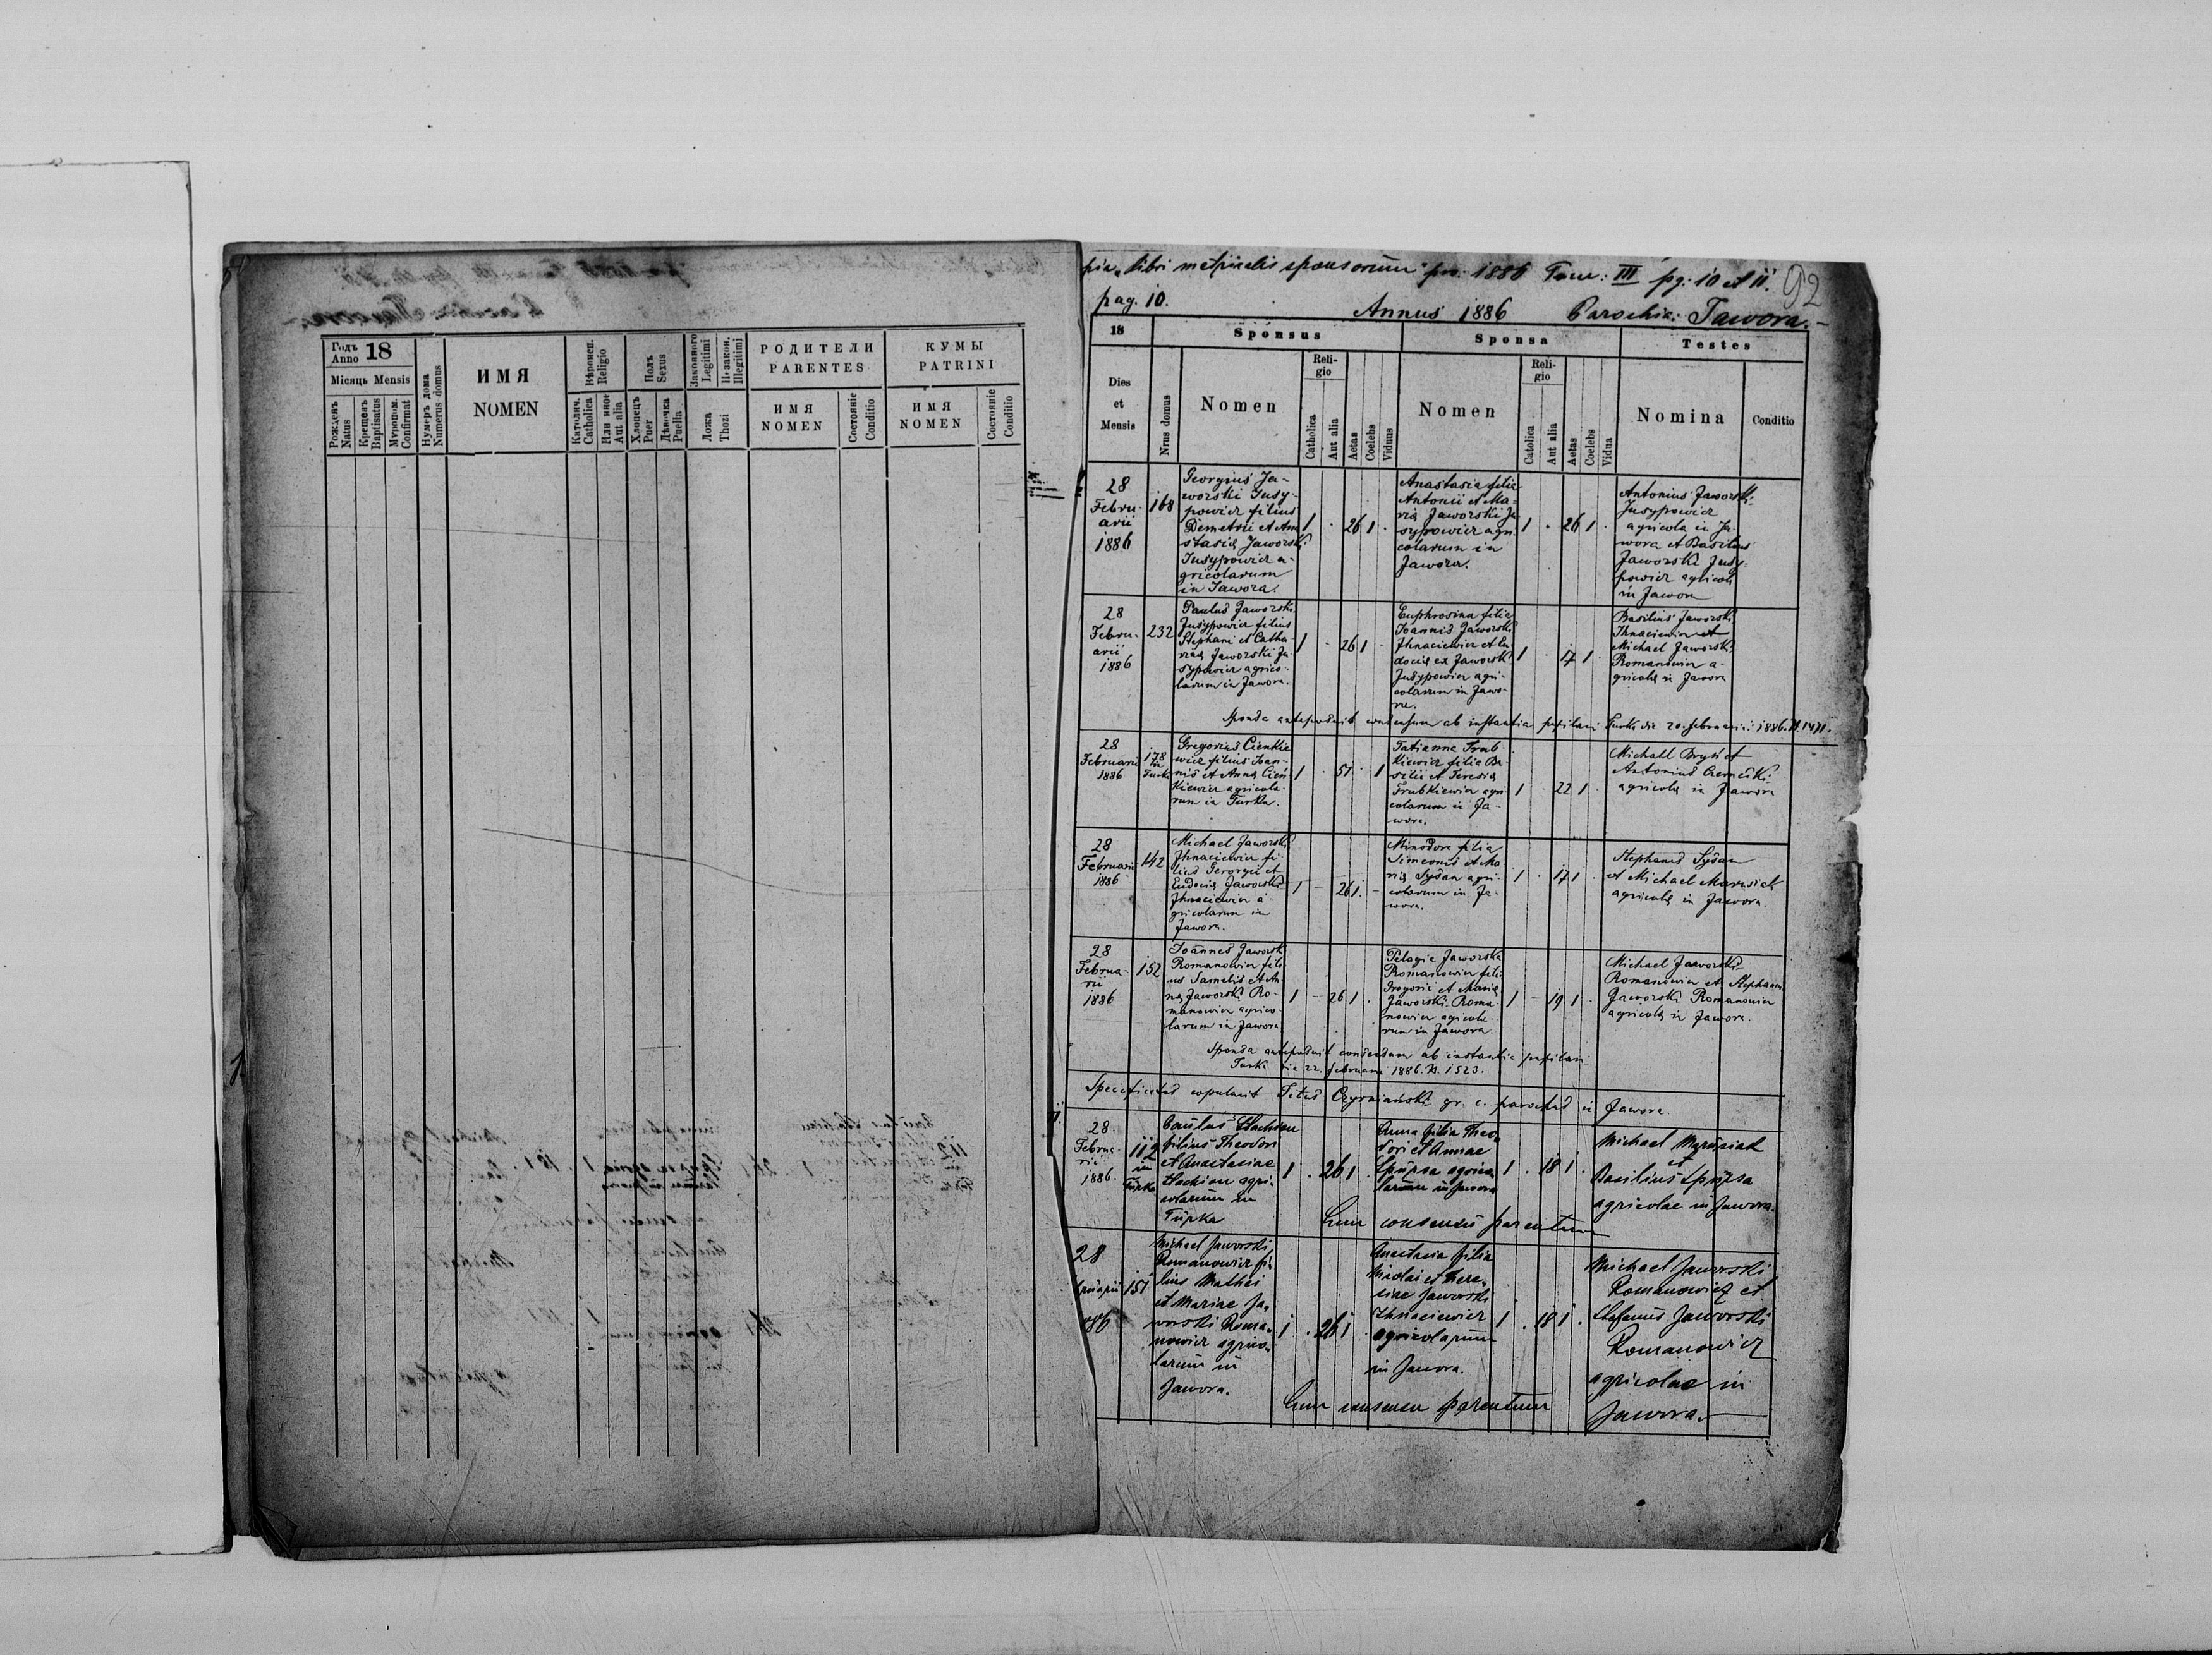 Годъ Anno 18
Місяць Mensis
Рожденъ Natus
Крещенъ Baptisatus
Мѵропом. Confirmat
Нумеръ дома Numerus domus
ИМЯ
NOMEN
Вѣроисп. Religio
Католич. Catholica
Или иное Aut alia
Полъ Sexus
Хлопецъ Puer
Дѣвочка Puella
Законного Legitimi
Незакон. Illegitimi
Ложа Thozi
РОДИТЕЛИ
PARENTES
ИМЯ
NOMEN
Состояніе Conditio
КУМЫ
PATRINI
ИМЯ
NOMEN
Состояніе Conditio
libri metricalis sponsorum pro 1886 Tom: III pg: 10 et 11.
92
pag. 10.
Annus 1886 Parochia: Jawora.
18
Sponsus
Sponsa
Testes
Dies
et
Mensis
Nrus domus
Nomen
Reli-
gio
Catholica
Aut alia
Aetas
Coelebs
Viduus
Nomen
Reli-
gio
Catolica
Aut alia
Aetas
Coelebs
Vidua
Nomina
Conditio
28
Febru-
arii
1886
168
Georgius Ja-
worski Jusy-
powicz filius
Demetrii et Ana
stasiæ Jaworski
Jusypowicz a-
gricolarum
in Jawora.
1 . 26 1 .
Anastasia filia
Antonii et Ma-
riæ Jaworski Ju
sypowicz agri-
colarum in
Jawora.
1 . 26 1 .
Antonius Jaworski
Jusypowicz
agricola in Ja-
wora et Basilius
Jaworski Jusy-
powicz agricola
in Jawora
28
Febru-
arii
1886
232
Paulus Jaworski
Jusypowicz filius
Stephani et Catha-
rinæ Jaworski Ju-
sypowicz agrico-
larum in Jawora.
1 - 26 1 -
Euphrosina filia
Joannis Jaworski
Ihnaciewicz et Eu
dociæ ex Jaworski
Jusypowicz agri-
colarum in Jawo-
ra.
1 17 1
Basilius Jaworski
Ihnaciewicz et
Michael Jaworski
Romanowicz a-
gricolæ in Jawora
Sponsa anteproduxit consensum ab instantia pupilari Turka die 20. februarii 1886. N. 1471.
28
Februarii
1886
178
in
Turka
Gregorius Cienkie
wicz filius Joan-
nis et Annæ Cien
kiewicz agricola-
rum in Turka.
1 . 51 . 1
Tatianna Trub-
kiewicz filia Ba-
silii et Teresiæ
Trubkiewicz agri
colarum in Ja-
wora.
1 . 22 1 .
Michael Bryś et
Antonius
agricolæ in Jawora
28
Februarii
1886
142
Michael Jaworski
Ihnaciewicz fi-
lius Georgii et
Eudociæ Jaworski
Ihnaciewicz a-
gricolarum in
Jawora.
1 - 26 1. -
Minodora filia
Simeonis et Ma-
riæ Sydan agri-
colarum in Ja-
wora.
1 . 17 1 .
Stephanus Sydan
et Michael Marusiak
agricolæ in Jawora.
28
Februa-
rii
1886
152
Joannes Jaworski
Romanowicz fili
us Danielis et An-
næ Jaworski Ro-
manowicz agrico-
larum in Jawora
1 - 26 1 .
Pelagia Jaworska
Romanowicz filia
Gregorii et Mariæ
Jaworski Roma-
nowicz agricola-
rum in Jawora.
1 - 19 1 .
Michael Jaworski
Romanowicz et Stephanus
Jaworski Romanowicz
agricolæ in Jawora.
Sponsa anteproduxit consensum ab instantia pupilari
Turka die 22. februarii 1886. N. 1523.
Specificatos copulavit Titus Czyrniański gr. c. parochus in Jawora.
28
Februa-
rii
1886.
112
in
Turka
Paulus
filius Theodori
et Anastasiae
agri-
colarum in
Turka
1 . 26 1 .
Anna filia Theo-
dori et Annae
agrico
larum in Jawora
1 . 18 1 .
Michael Marusiak
et
Basilius
agricolae in Jawora.
Cum consensu parentum
28
151
Michael Jaworski
Romanowicz fi-
lius Mathei
et Mariae Ja-
worski Roma-
nowicz agrico-
larum in
Jawora.
1 . 26 1 .
Anastasia filia
Nicolai et There-
siae Jaworski
Ihnaciewicz
agricolarum
in Jawora.
1 . 18 1 .
Michael Jaworski
Romanowicz et
Stefanus Jaworski
Romanowicz
agricolae in
Jawora.
Cum consensu parentum